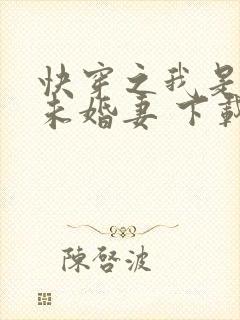 快穿之我是
未婚妻 下載
陳啓波